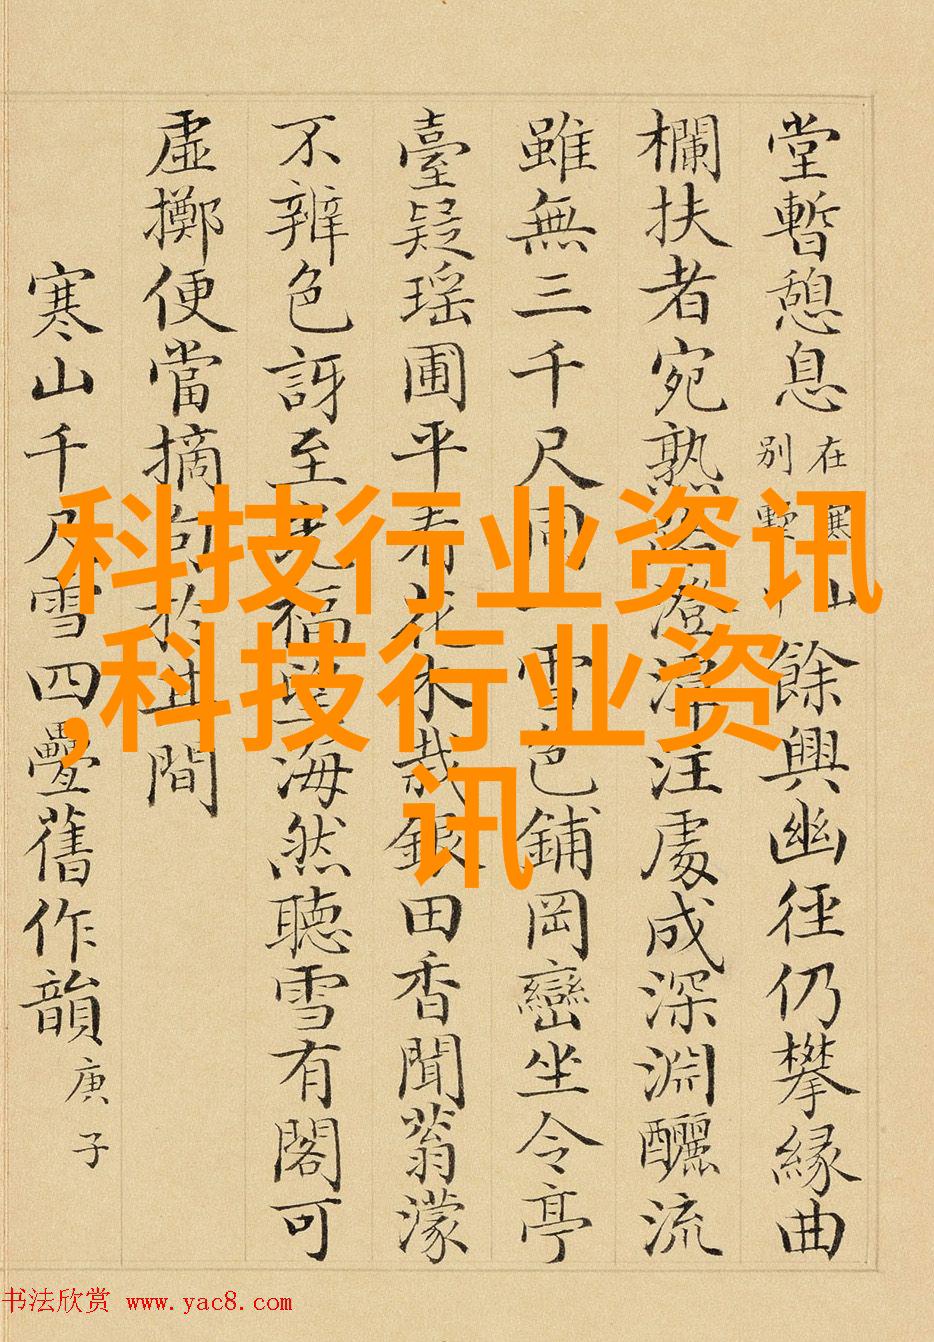 堂暫憩息在寒山別墅中餘興幽徑仍攀緣曲
欄扶者宛熟澄注處成深淵釃流
雖無三千尺同一雪色鋪岡巒坐令亭
臺疑瑶圃平看花木栽銀田香聞蓊濛
不辨色訝至光福海然聽雪有閣可
虛擲便當摘句於其間
寒山千尺雪四疊舊作韻庚子
科技行业资讯
,科技行业资
讯
书法欣赏 www.yac8.com